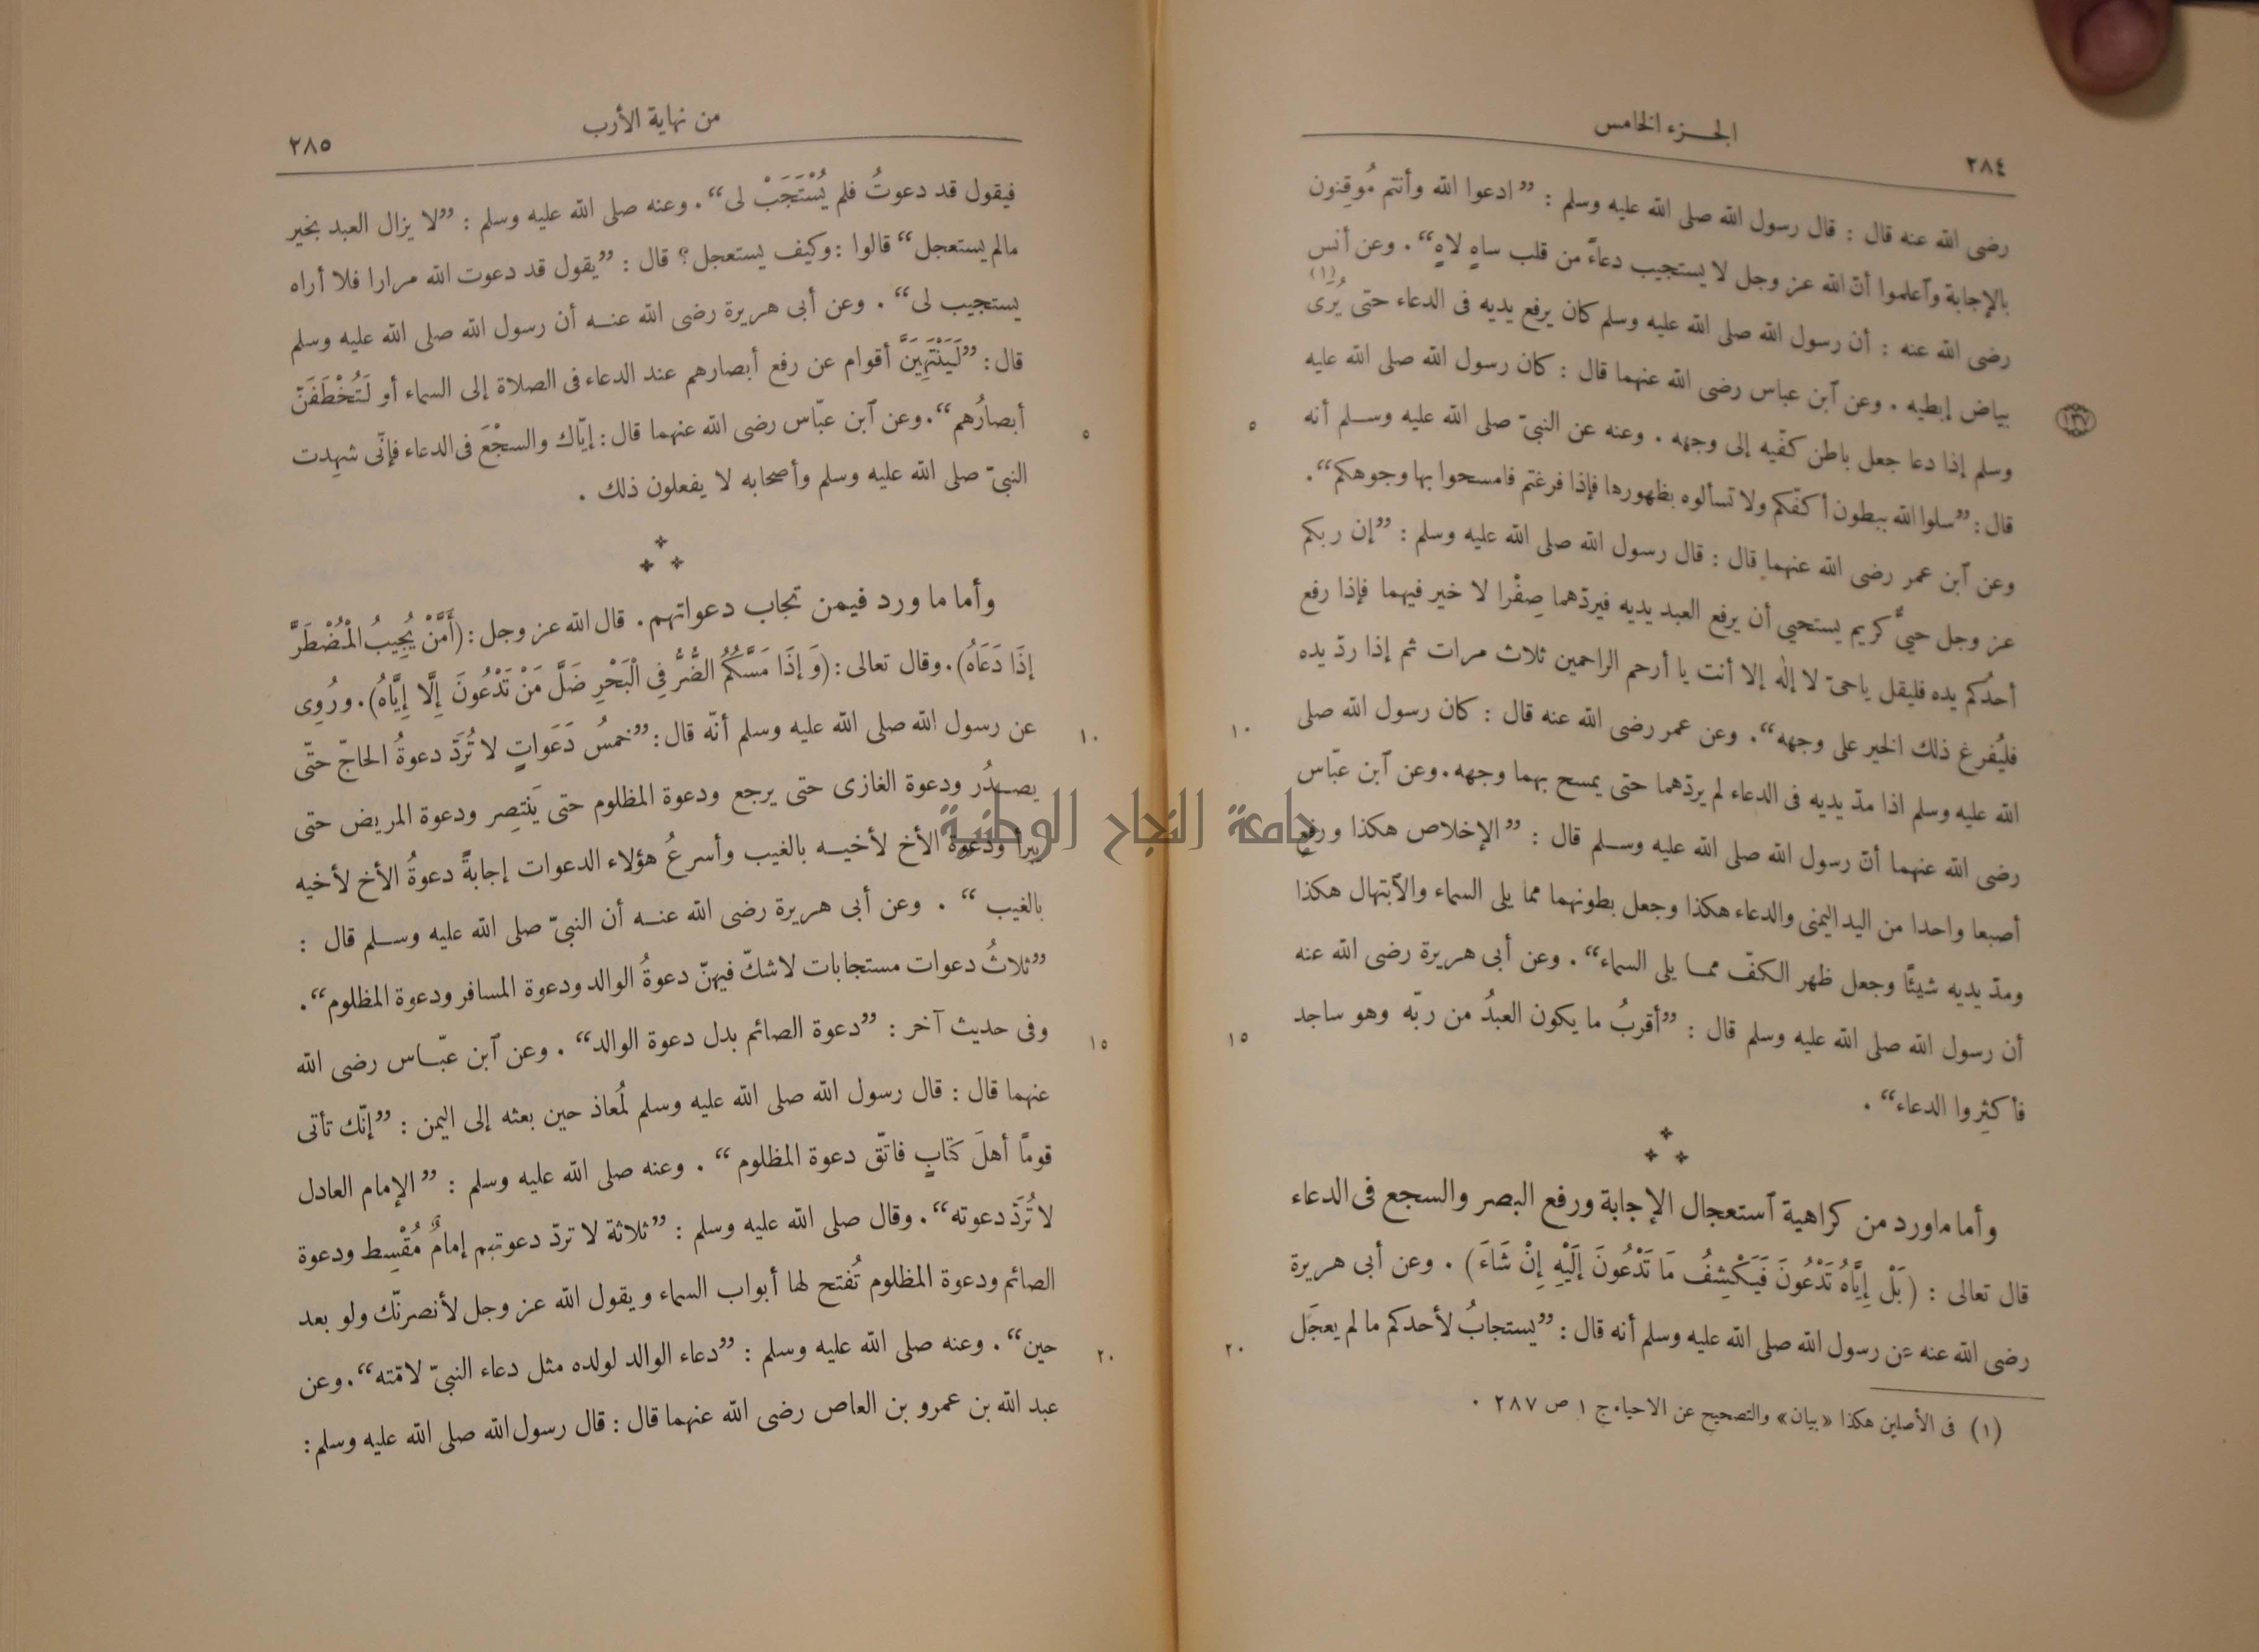 الجزء الخامس
٢٨٤
رضى الله عنه قال : قال رسول الله صلى الله عليه وسلم : ”ادعوا الله وأنتم مُوقِنون
بالإجابة وٱعلموا أنّ الله عز وجل لا يستجيب دعاءً من قلب ساهٍ لاهٍ“ . وعن أنس
رضى الله عنه : أن رسول الله صلى الله عليه وسلم كان يرفع يديه فى الدعاء حتى يُرَى (١)
بياض إبطيه . وعن ٱبن عباس رضى الله عنهما قال : كان رسول الله صلى الله عليه
١٣٧
وسلم إذا دعا جعل باطن كفّيه إلى وجهه . وعنه عن النبىّ صلى الله عليه وسلم أنه
٥
قال : ”سلوا الله ببطون أكفّكم ولا تسألوه بظهورها فإذا فرغتم فامسحوا بها وجوهكم“.
وعن ٱبن عمر رضى الله عنهما قال : قال رسول الله صلى الله عليه وسلم : ”إن ربكم
عز وجل حيىٌّ كريم يستحيى أن يرفع العبد يديه فيردّهما صِفْرا لا خير فيهما فإذا رفع
أحدُكم يده فليقل ياحىّ لا إله إلا أنت يا أرحم الراحمين ثلاث مرات ثم إذا ردّ يده
فليُفرغ ذلك الخير على وجهه“. وعن عمر رضى الله عنه قال : كان رسول الله صلى
١٠
الله عليه وسلم اذا مدّ يديه فى الدعاء لم يردّهما حتى يمسح بهما وجهه . وعن ٱبن عبّاس
رضى الله عنهما أنّ رسول الله صلى الله عليه وسلم قال : ”الإخلاص هكذا ورفع
أصبعا واحدا من اليد اليمنى والدعاء هكذا وجعل بطونهما مما يلى السماء والٱبتهال هكذا
ومدّ يديه شيئًا وجعل ظهر الكفّ مما يلى السماء“ . وعن أبى هريرة رضى الله عنه
أن رسول الله صلى الله عليه وسلم قال : ”أقربُ ما يكون العبدُ من ربّه وهو ساجد
١٥
فأكثِروا الدعاء“ .
وأما ماورد من كراهية ٱستعجال الإجابة ورفع البصر والسجع فى الدعاء
قال تعالى : (بَلْ إِيَّاهُ تَدْعُونَ فَيَكْشِفُ مَا تَدْعُونَ إلَيْهِ إِنْ شَاءَ) . وعن أبى هريرة
رضى الله عنه عن رسول الله صلى الله عليه وسلم أنه قال : ”يستجابُ لأحدكم ما لم يعجَل
٢٠
(١) فى الأصلين هكذا «بيان» والتصحيح عن الاحياء ج ١ ص ٢٨٧ .
من نهاية الأرب
٢٨٥
فيقول قد دعوتُ فلم يُسْتَجَبْ لى“ . وعنه صلى الله عليه وسلم : ”لا يزال العبد بخير
مالم يستعجل“ قالوا : وكيف يستعجل؟ قال : ”يقول قد دعوت الله مرارا فلا أراه
يستجيب لى“ . وعن أبى هريرة رضى الله عنه أن رسول الله صلى الله عليه وسلم
قال : ”لَيَنْتَهِيَنَّ أقوام عن رفع أبصارهم عند الدعاء فى الصلاة إلى السماء أو لَتُخْطَفَنّ
أبصارُهم“. وعن ٱبن عبّاس رضى الله عنهما قال : إيّاك والسجْعَ فى الدعاء فإنّى شهِدت
٥
النبىّ صلى الله عليه وسلم وأصحابه لا يفعلون ذلك .
وأما ما ورد فيمن تجاب دعواتهم . قال الله عز وجل : (أَمَّنْ يُجِيبُ الْمُضْطَرَّ
إذَا دَعَاهُ) . وقال تعالى : (وَإذَا مَسَّكُمُ الضُّرُّ فِى الْبَحْرِ ضَلَّ مَنْ تَدْعُونَ إِلَّا إِيَّاهُ) . ورُوِى
عن رسول الله صلى الله عليه وسلم أنّه قال : ”خمسُ دَعَواتٍ لا تُرَدّ دعوةُ الحاجّ حتّى
١٠
يصدُر ودعوة الغازى حتى يرجع ودعوة المظلوم حتى يَنتصِر ودعوة المريض حتى
يبرأ ودعوة الأخ لأخيه بالغيب وأسرعُ هؤلاء الدعوات إجابةً دعوةُ الأخ لأخيه
بالغيب“ . وعن أبى هريرة رضى الله عنه أن النبىّ صلى الله عليه وسلم قال :
”ثلاثُ دعوات مستجابات لاشكّ فيهنّ دعوةُ الوالد ودعوة المسافر ودعوة المظلوم“.
وفى حديث آخر : ”دعوة الصائم بدل دعوة الوالد“ . وعن ٱبن عبّاس رضى الله
١٥
عنهما قال : قال رسول الله صلى الله عليه وسلم لمُعاذ حين بعثه إلى اليمن : ”إنّك تأتى
قومًا أهلَ كتابٍ فاتّق دعوة المظلوم“ . وعنه صلى الله عليه وسلم : ”الإمام العادل
لا تُرَدّ دعوته“ . وقال صلى الله عليه وسلم : ”ثلاثة لا تردّ دعوتهم إمامٌ مُقْسِط ودعوة
الصائم ودعوة المظلوم تُفتح لها أبواب السماء ويقول الله عز وجل لأنصرنّك ولو بعد
حين“ . وعنه صلى الله عليه وسلم : ”دعاء الوالد لولده مثل دعاء النبىّ لاقته“. وعن
٢٠
عبد الله بن عمرو بن العاص رضى الله عنهما قال : قال رسول الله صلى الله عليه وسلم :
جامعة النجاح الوطنية